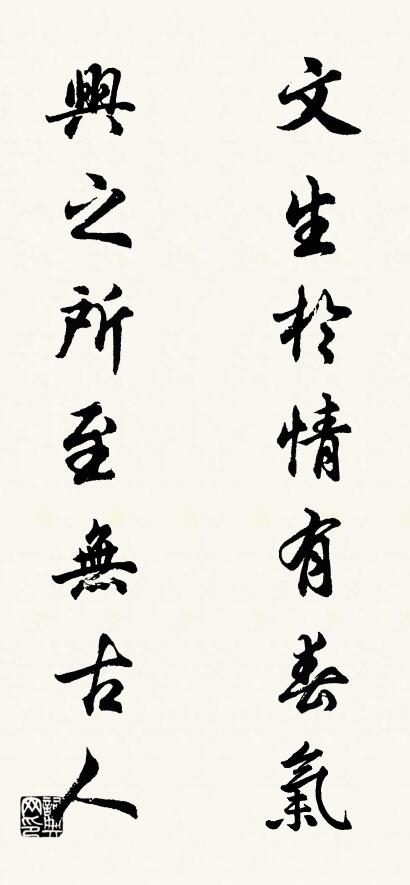 文生於情有春氣
興之所至無古人